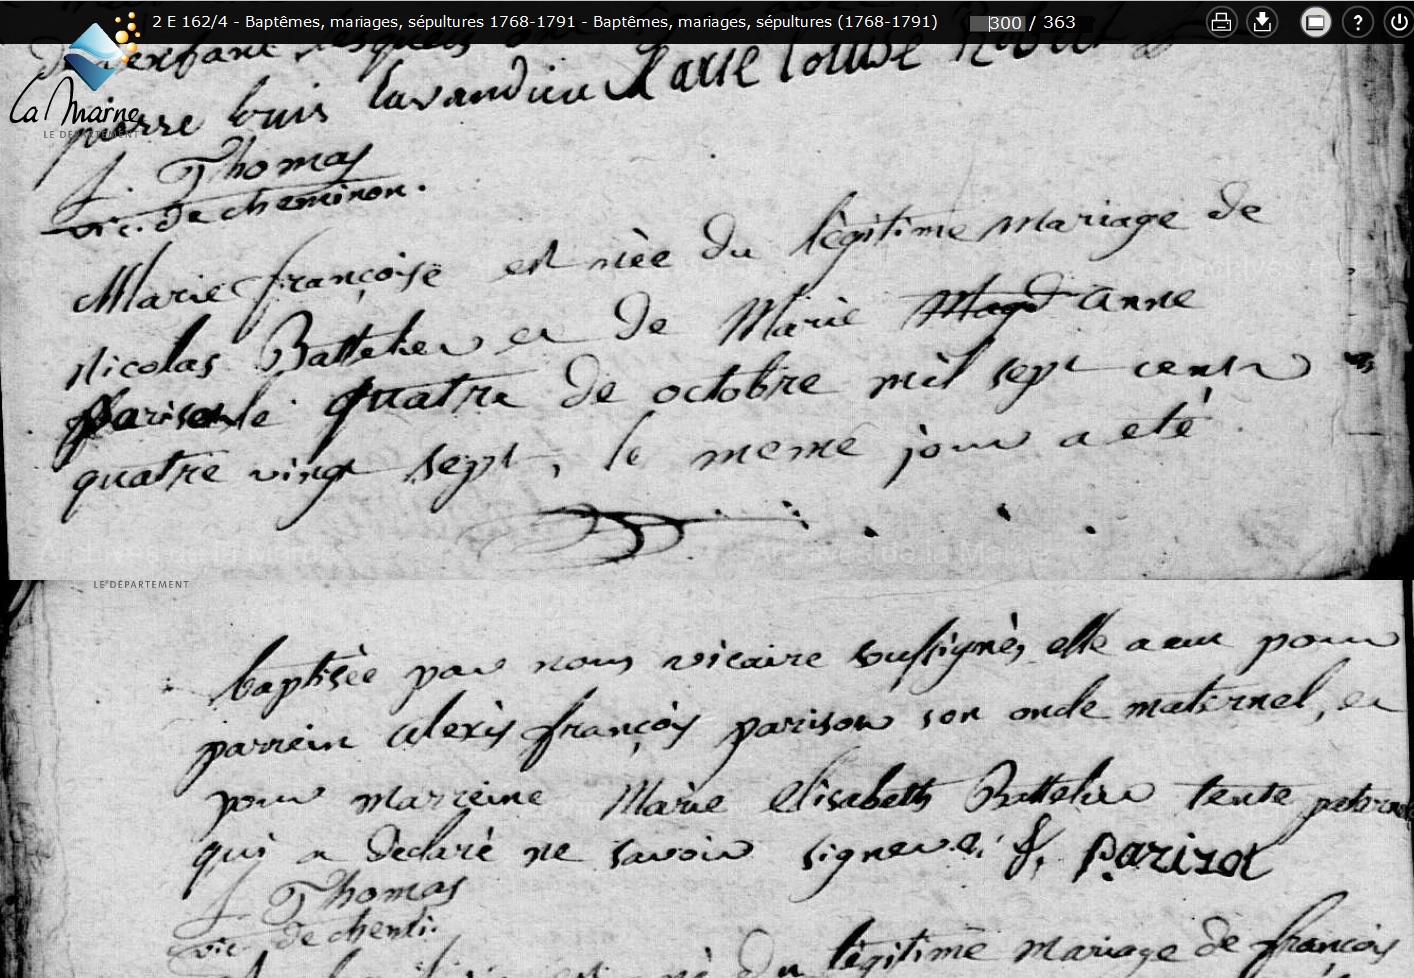 2 E 162/4 - Baptêmes, mariages, sépultures 1768-1791 - Baptêmes, mariages, sépultures (1768-1791) 300 / 363
La Marne
LE DÉPARTEMENT
pierre louis lavandieu Marie louise
J. Thomas
vic. de cheminon.
Marie françoise est née du légitime Mariage de
Nicolas Battelier et de Marie Magd anne
parison le quatre de octobre mil sept cent
quatre vingt sept, le meme jour a eté
LE DÉPARTEMENT
baptisée par nous vicaire soussigné, elle a eu pour
parrein alexis françois parison son oncle maternel, et
pour marreine Marie elisabeth Battelier tente paternel
qui a declaré ne savoir signer. f. parizot
J. Thomas
vic. de chemi.
légitime mariage de françois